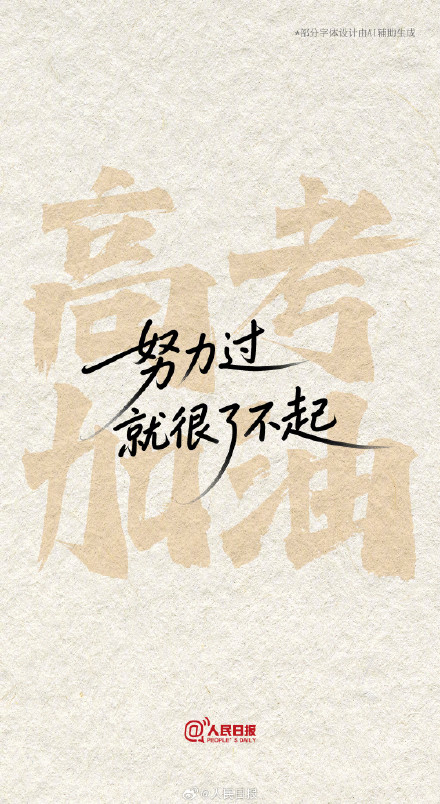 *部分字体设计由AI辅助生成
高考
加油
努力过
就很了不起
@人民日报
PEOPLE'S DAILY
@人民日报